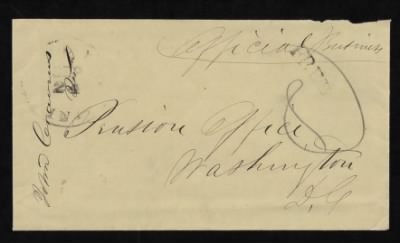 Official Business
Pension Office,
Washington
D.C
John